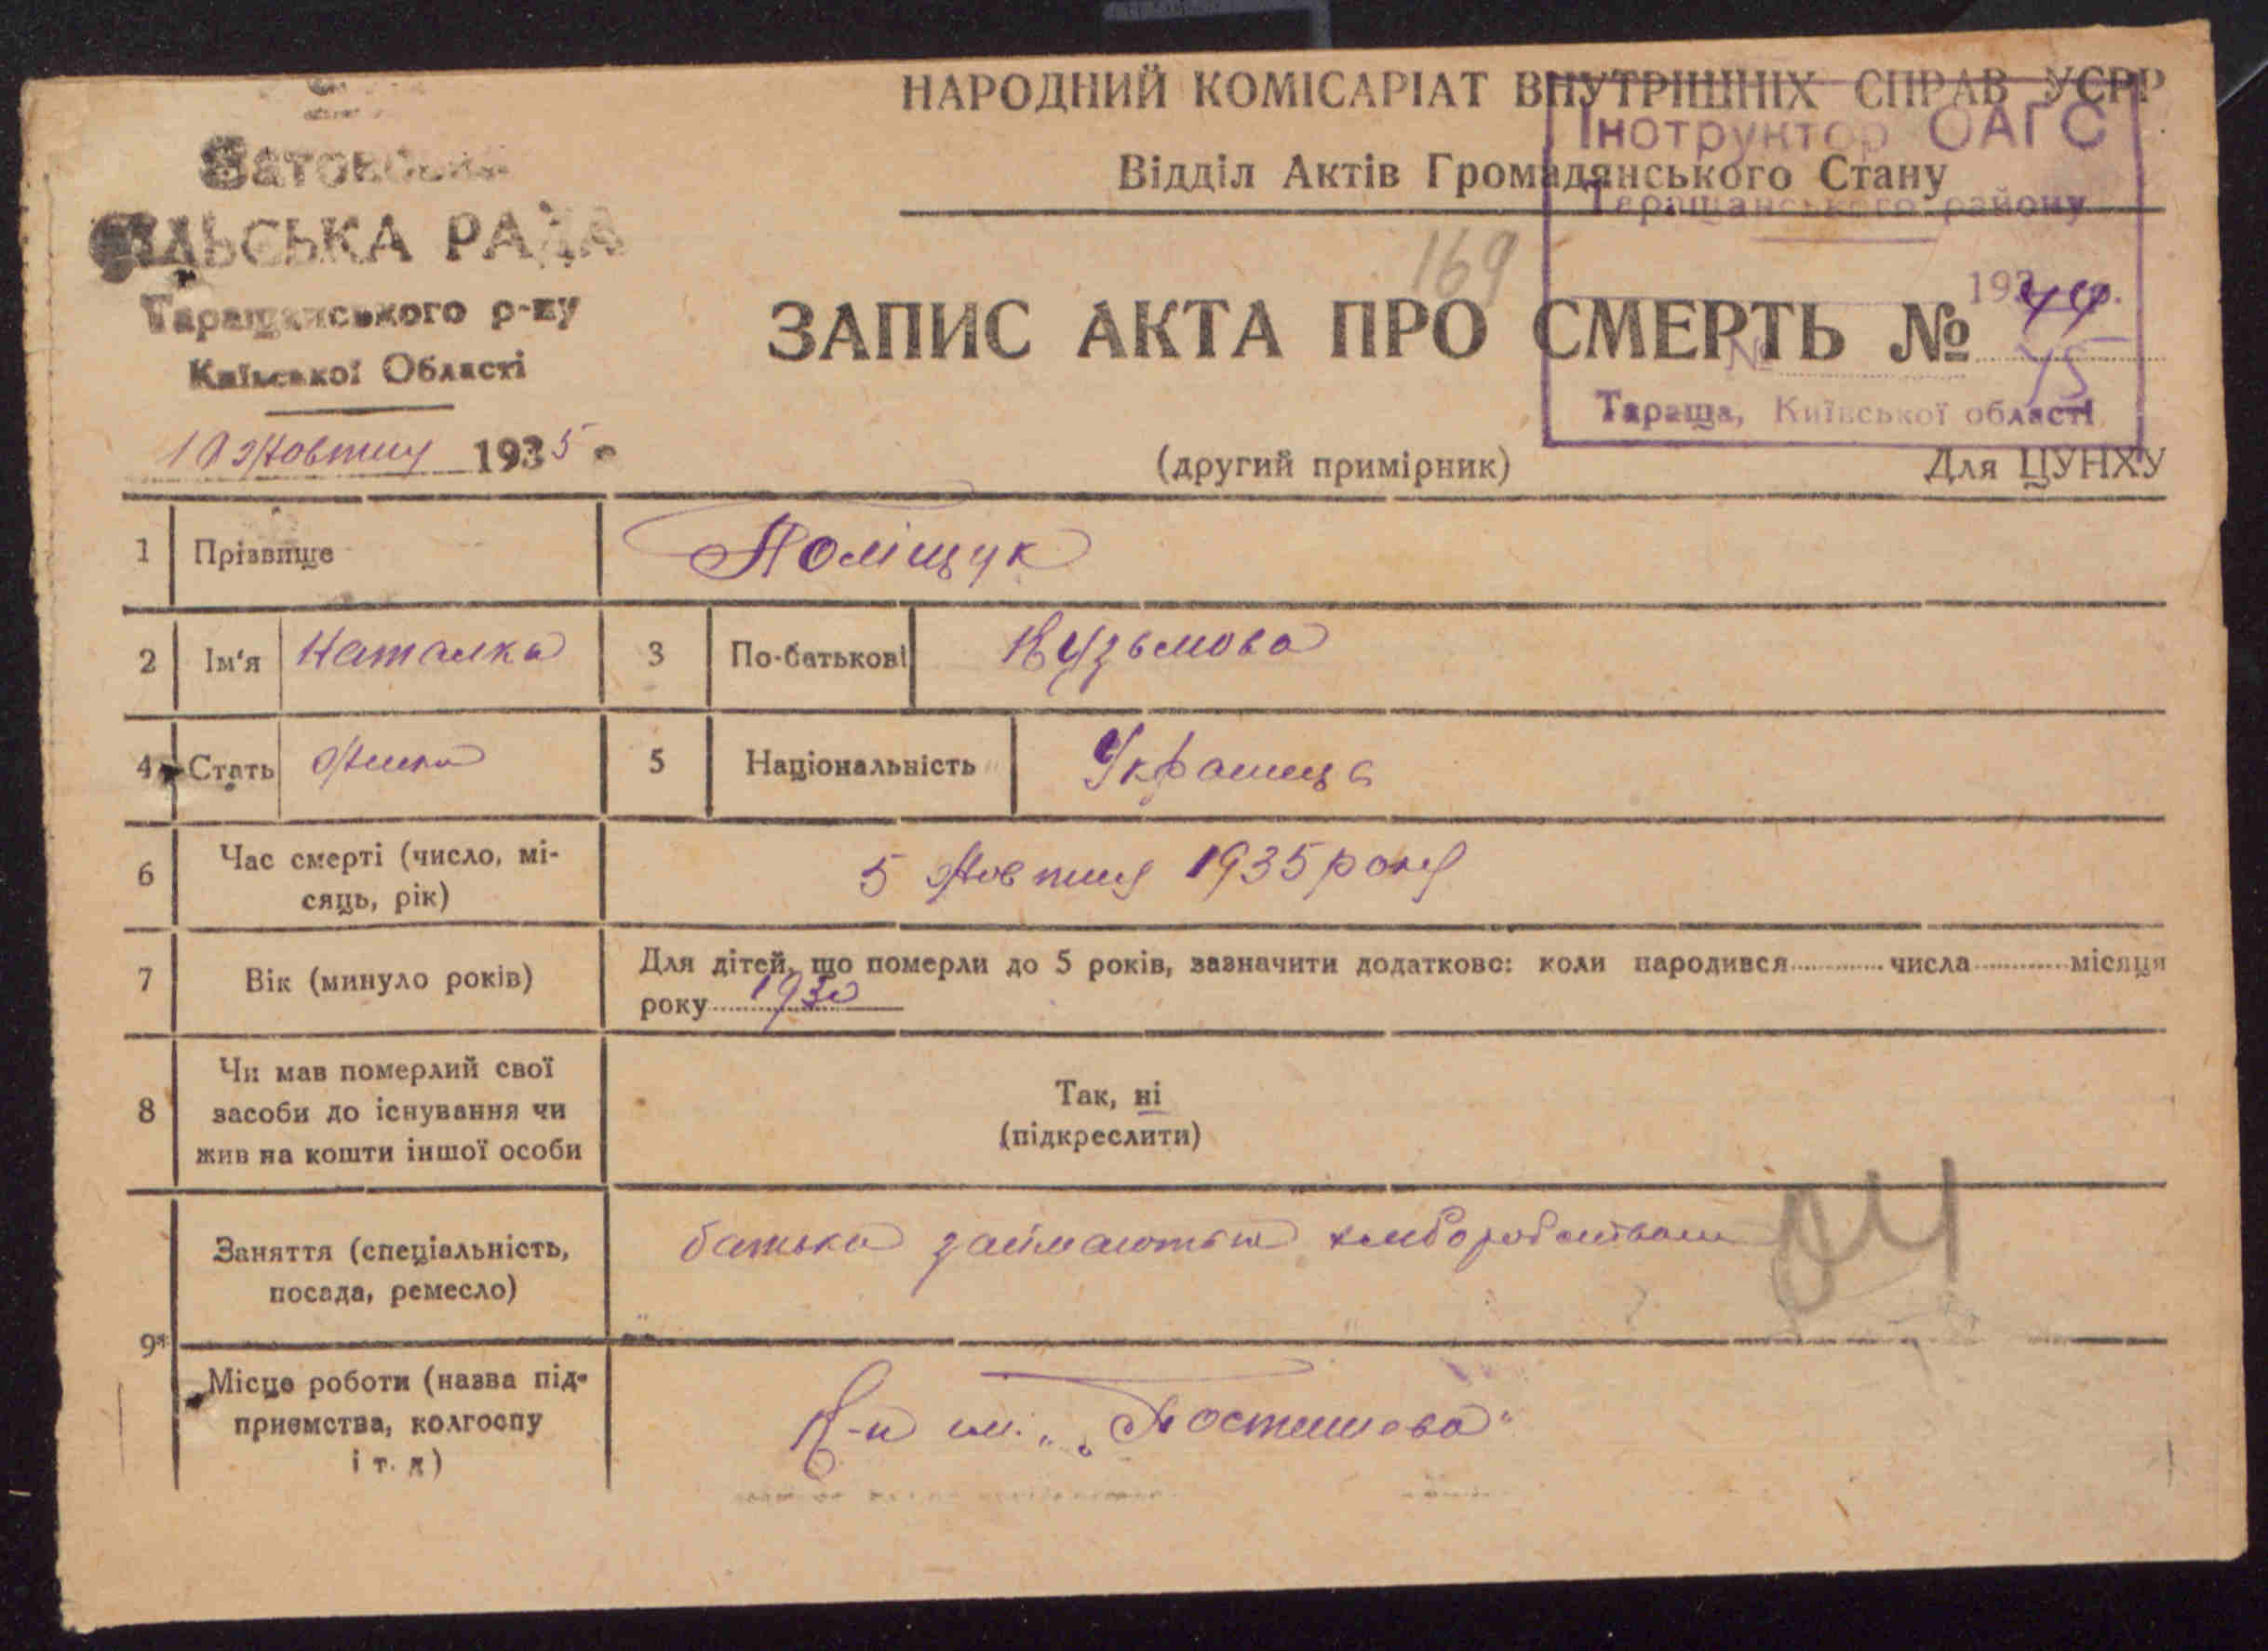 НАРОДНИЙ КОМІСАРІАТ ВНУТРІШНІХ СПРАВ УСРР
Відділ Актів Громадянського Стану
СІЛЬСЬКА РАДА
Таращанського р-ну
Київської Області
10 жовтня 1935
Інструктор ОАГС
Таращанського району
193
№
Тараща, Київської області
169
ЗАПИС АКТА ПРО СМЕРТЬ № 44
45
(другий примірник)
Для ЦУНХУ
1 Прізвище Поліщук
2 Ім'я Наталка 3 По-батькові Кузьмова
4 Стать жіноча 5 Національність Українка
6 Час смерті (число, мі-
сяць, рік) 5 жовтня 1935 року
7 Вік (минуло років) Для дітей, що померли до 5 років, зазначити додатково: коли народився числа місяця
року 1930
8 Чи мав померлий свої
засоби до існування чи
жив на кошти іншої особи
Так, ні
(підкреслити)
9 Заняття (спеціальність,
посада, ремесло) батьки займаються хліборобством
Місце роботи (назва під-
приємства, колгоспу
і т. д) К-п ім. „Постишева"